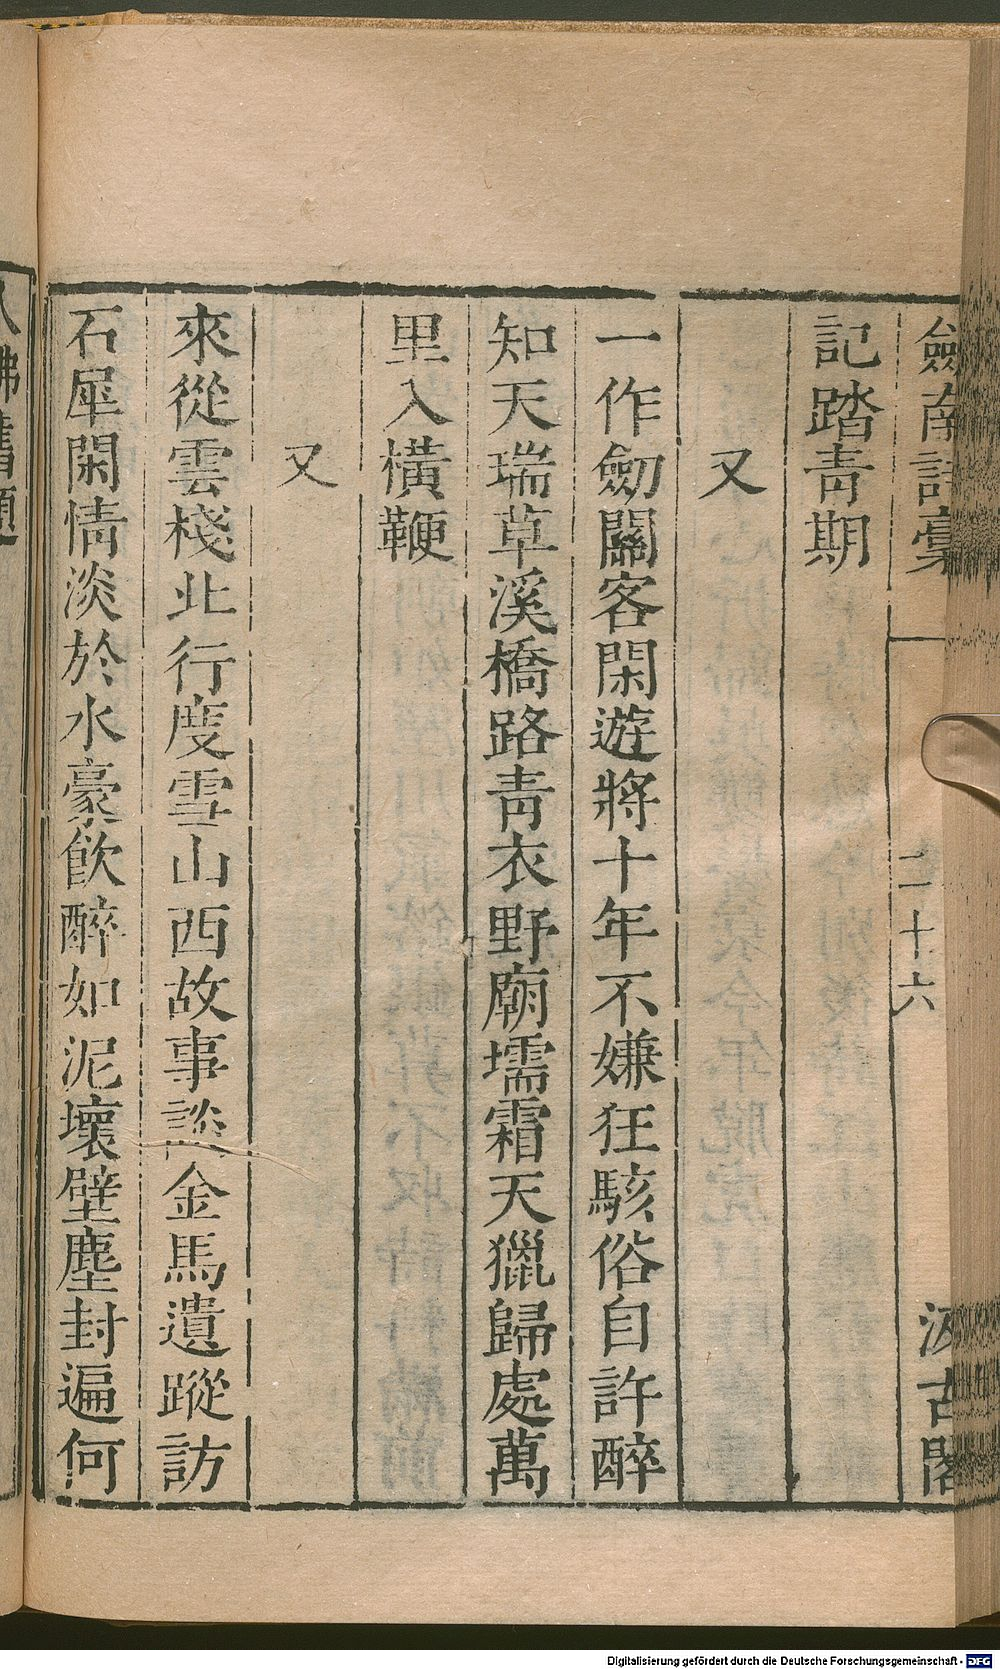 劍南詩稾 二十六 汲古閣
記踏靑期
又
一作劒關客閑遊將十年不嫌狂駭俗自許醉
知天瑞草溪橋路靑衣野廟壖霜天獵歸處萬
里入橫鞭
又
來從雲棧北行度雪山西故事談金馬遺蹤訪
石犀閑情淡於水豪飮醉如泥壞壁塵封遍何
人拂舊題
Digitalisierung gefördert durch die Deutsche Forschungsgemeinschaft - DFG